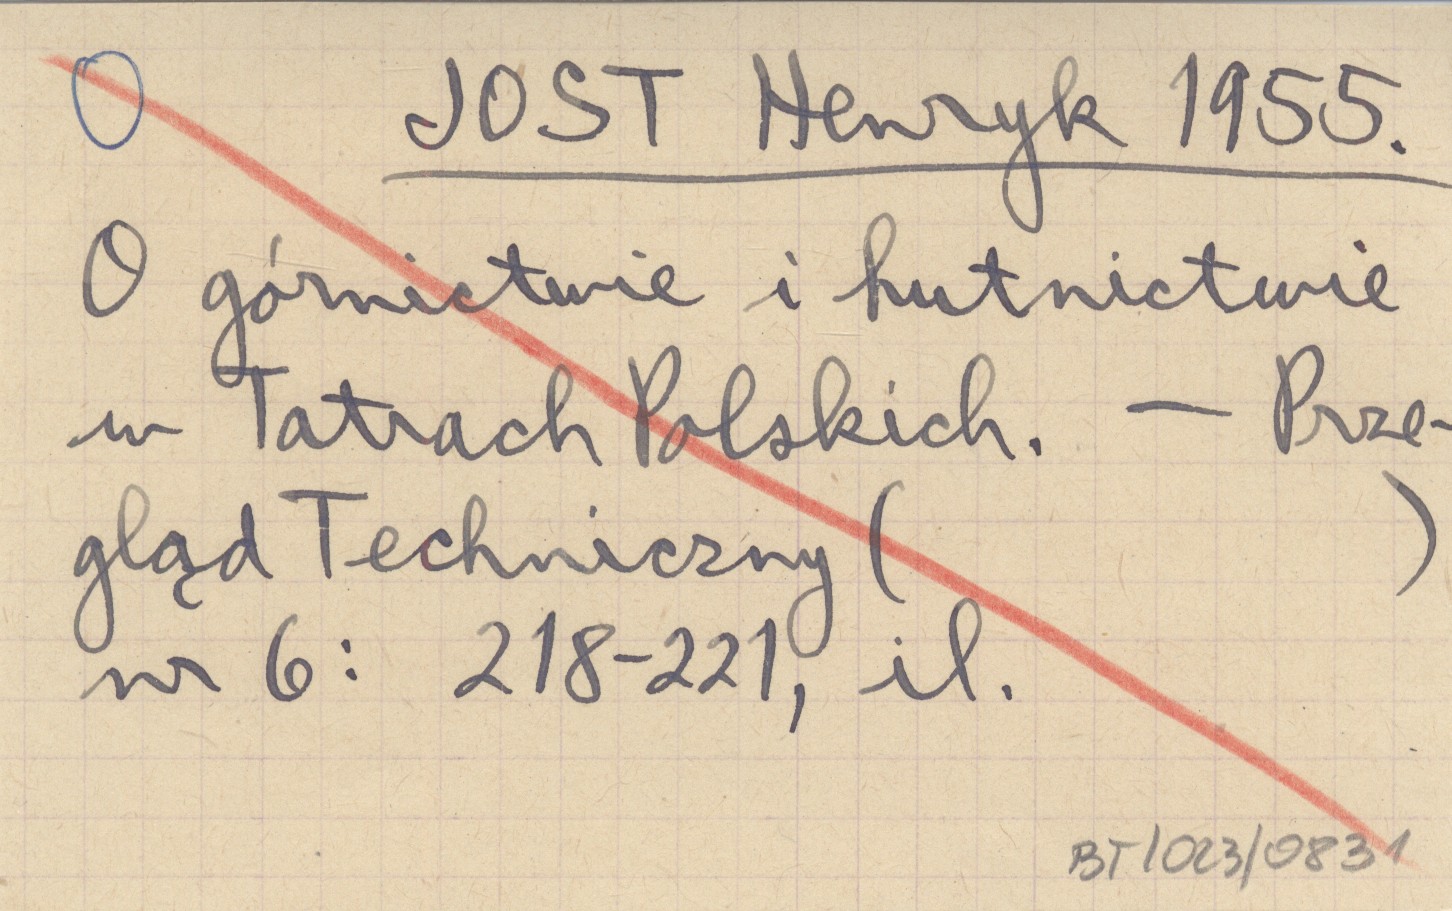 JOST Henryk 1955.
O górnictwie i hutnictwie
w Tatrach Polskich. — Prze-
gląd Techniczny (                    )
nr 6: 218-221, il.
BT/023/0831